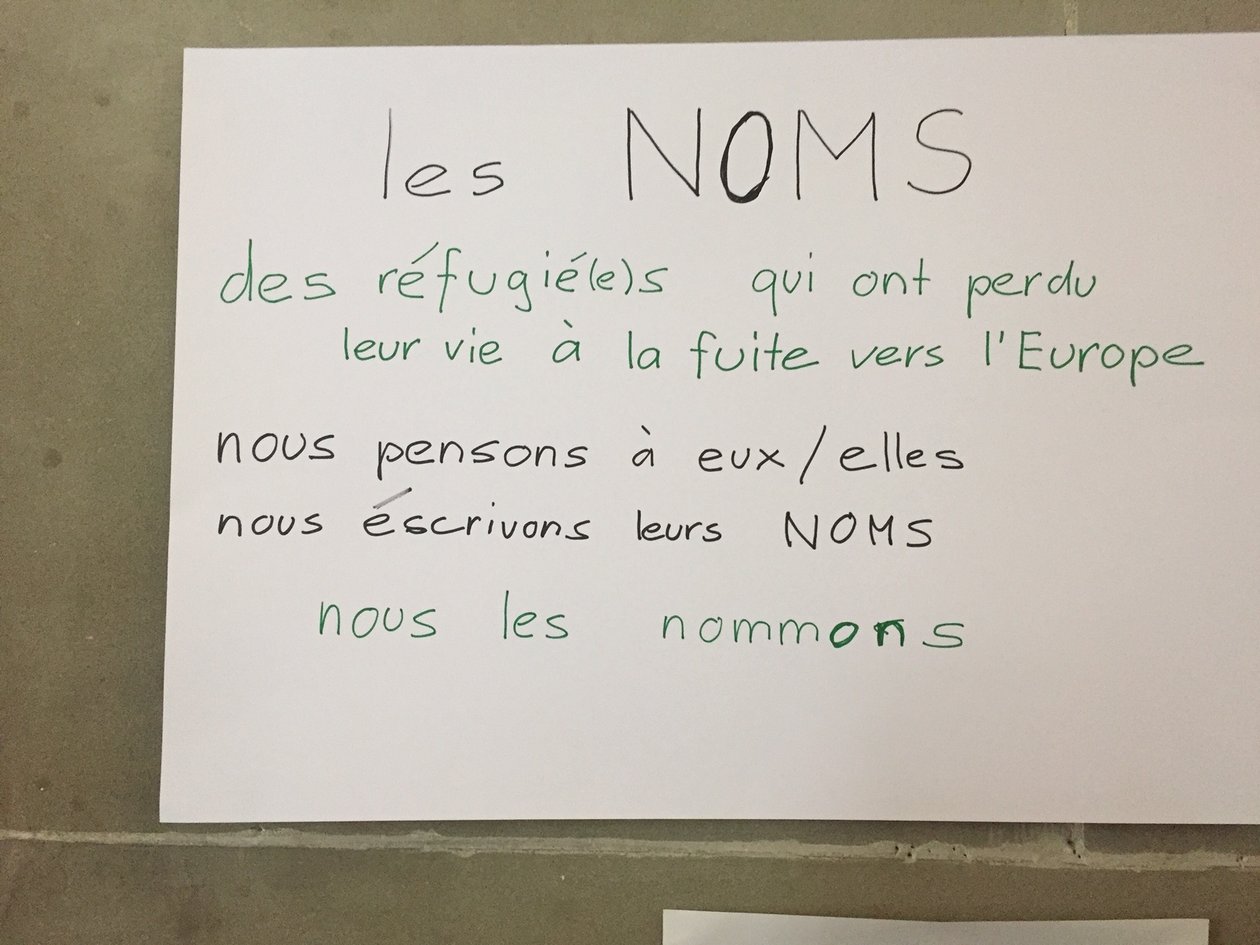 les NOMS
des réfugié(e)s qui ont perdu
leur vie à la fuite vers l'Europe
nous pensons à eux/elles
nous éscrivons leurs NOMS
nous les nommons